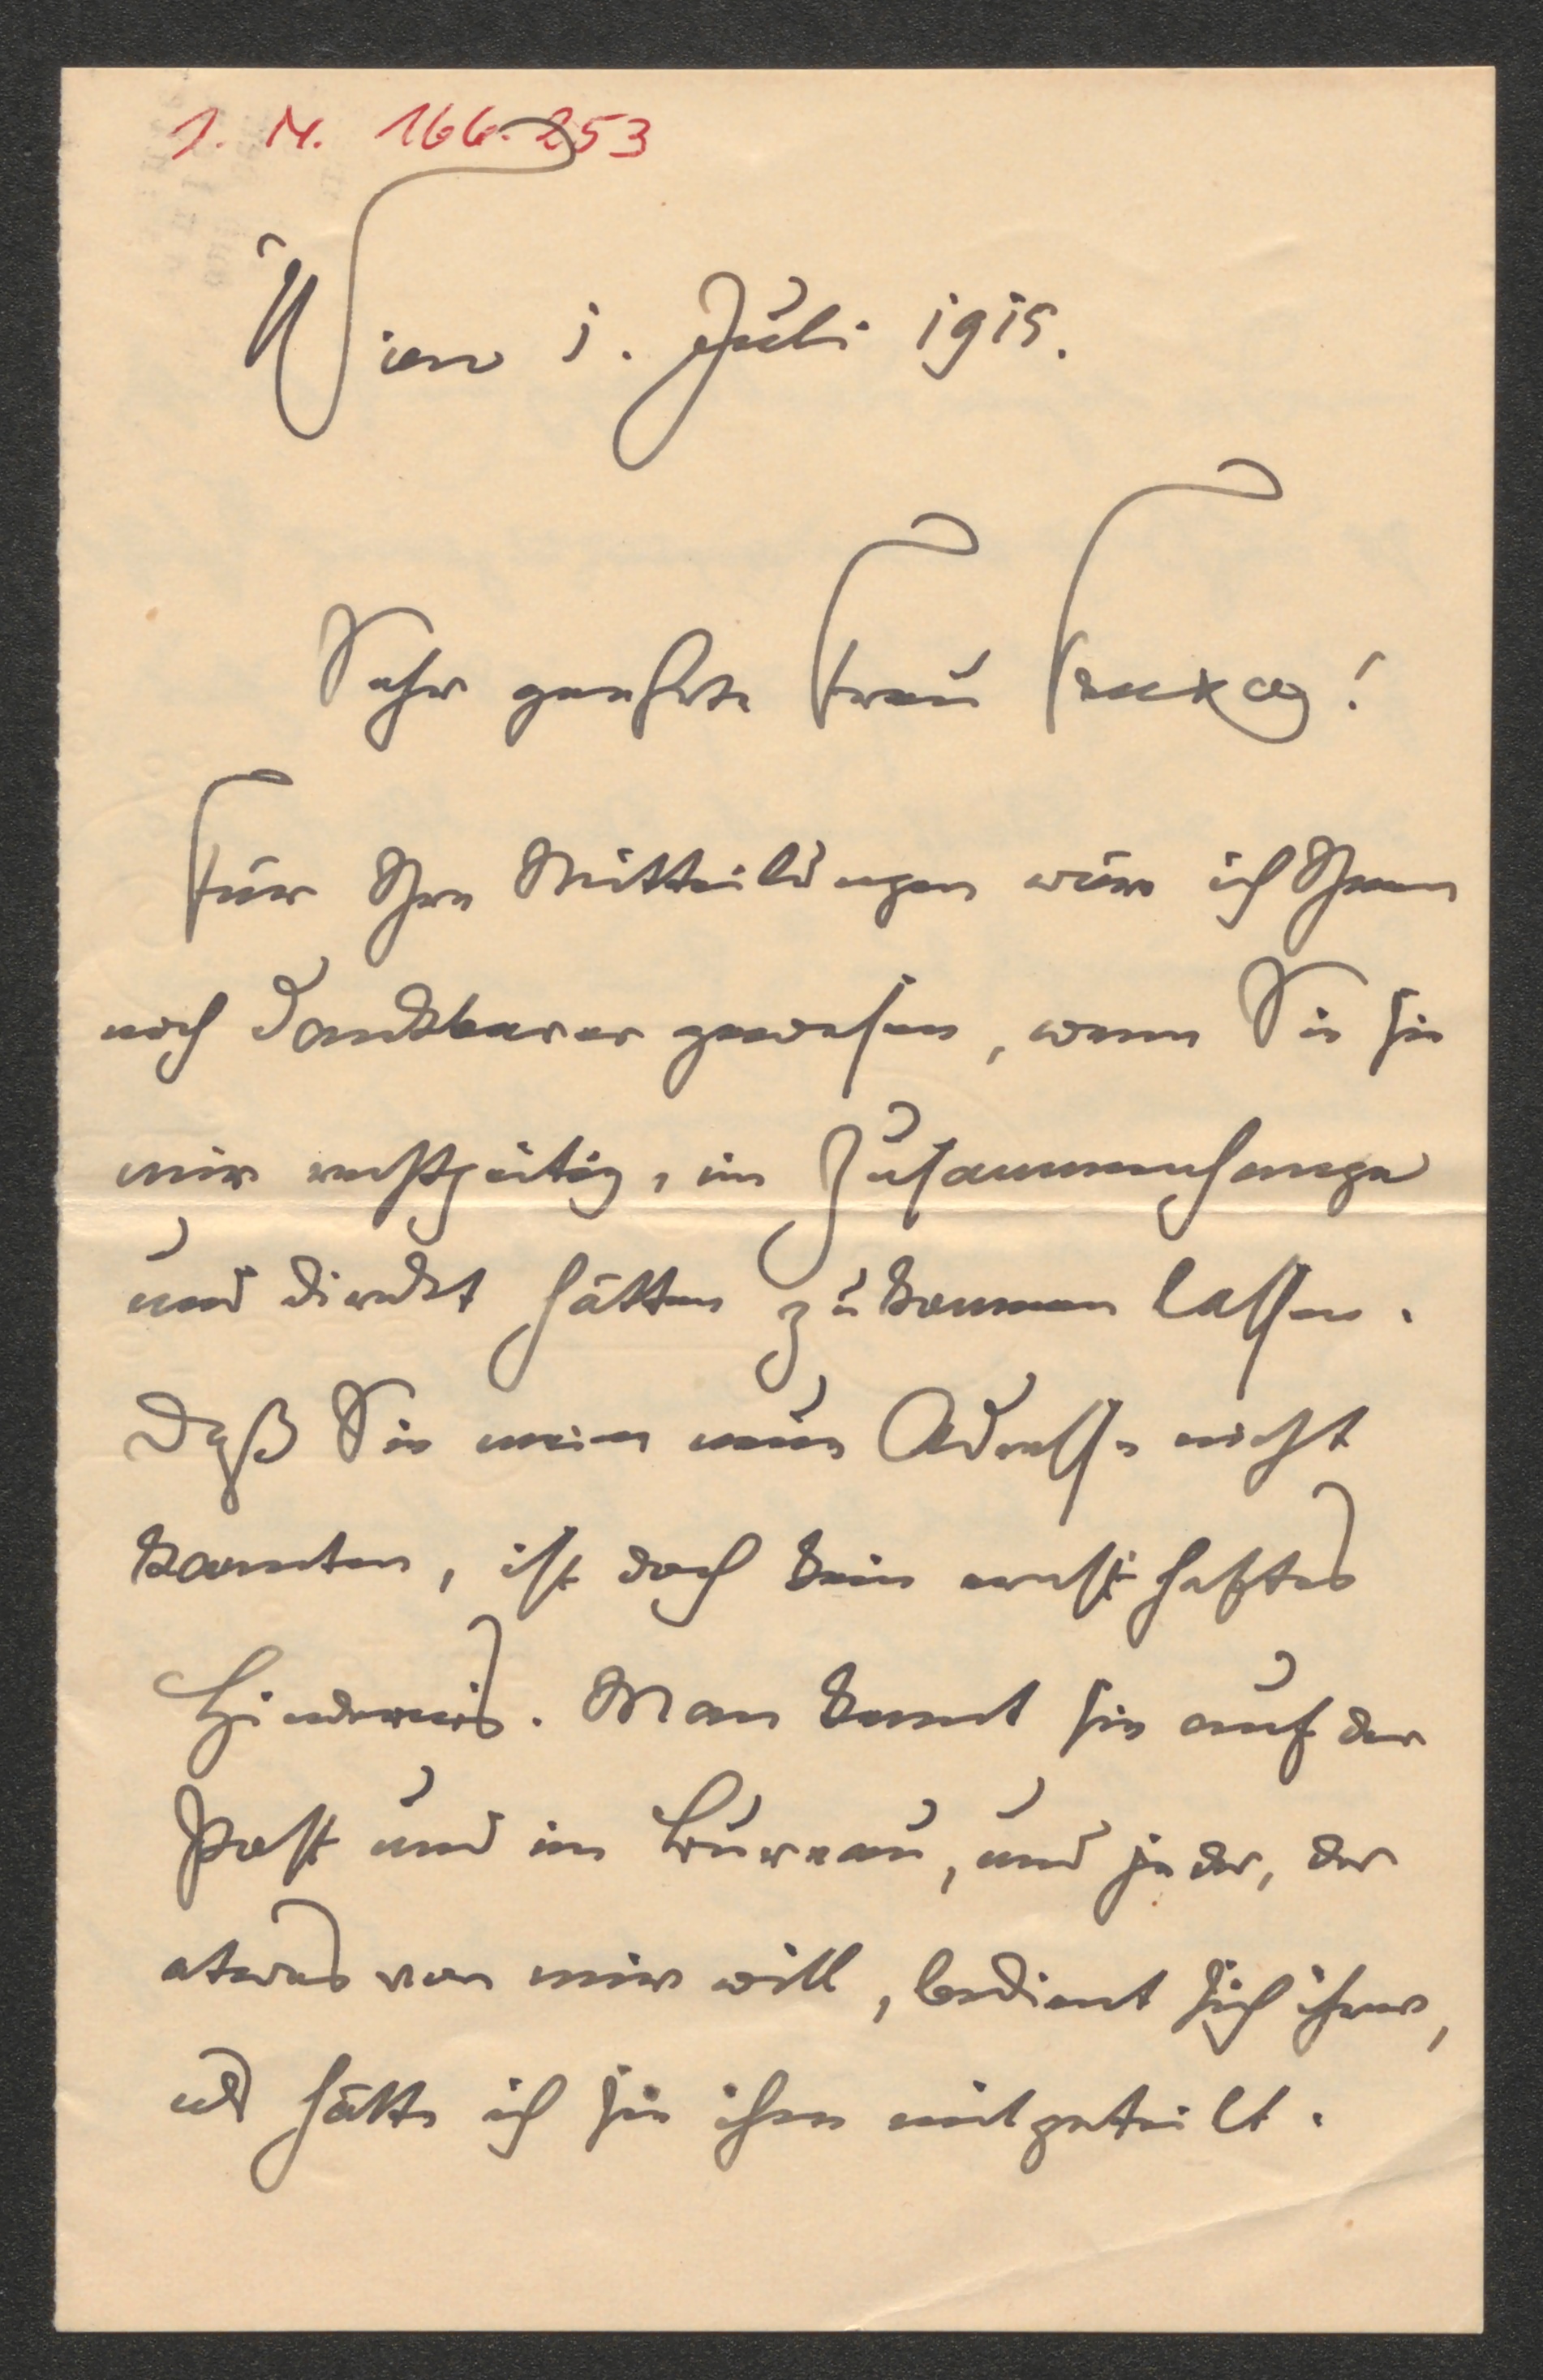 I. N. 166.253
Wien 1. Juli 1915.
Sehr geehrte Frau !
Für Ihre Mitteilungen wäre ich Ihnen
noch dankbarer gewesen, wenn Sie sie
mir rechtzeitig, im Zusammenhange
und direkt hätten zukommen lassen.
Daß Sie meine neue Adresse nicht
kannten, ist doch kein ernsthaftes
Hindernis. Man kennt sie auf der
Post und im Bureau, und jeder, der
etwas von mir will, bedient sich ihrer,
als hätte ich sie ihm mitgeteilt.